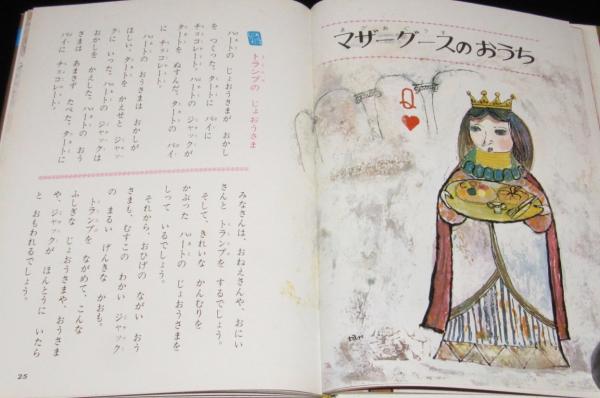 マザーグースのおうち
Q
トランプの じょおうさま
ハートの じょおうさまが おかし
を つくった。タートに パイに
チョコレート。ハートの ジャックが
タートを ぬすんだ。タートの パイ
ほしい、タートを かえせと ジャッ
クに いった。ハートの ジャックは
おかしを かえした。ハートの おう
さまは あまさず たべた。タートに
パイに チョコレート。
みなさんは、おねえさんや、おにい
さんと トランプを するでしょう。
そして、きれいな かんむりを
かぶった ハートの じょおうさまを
しって いるでしょう。
それから、おひげの ながい おう
さまも、むすこの わかい ジャック
の まるい げんきな かおも。
トランプを ながめて、こんな
ふしぎな じょおうさまや、おうさま
や、ジャックが ほんとうに いたら
と おもわれるでしょう。
25